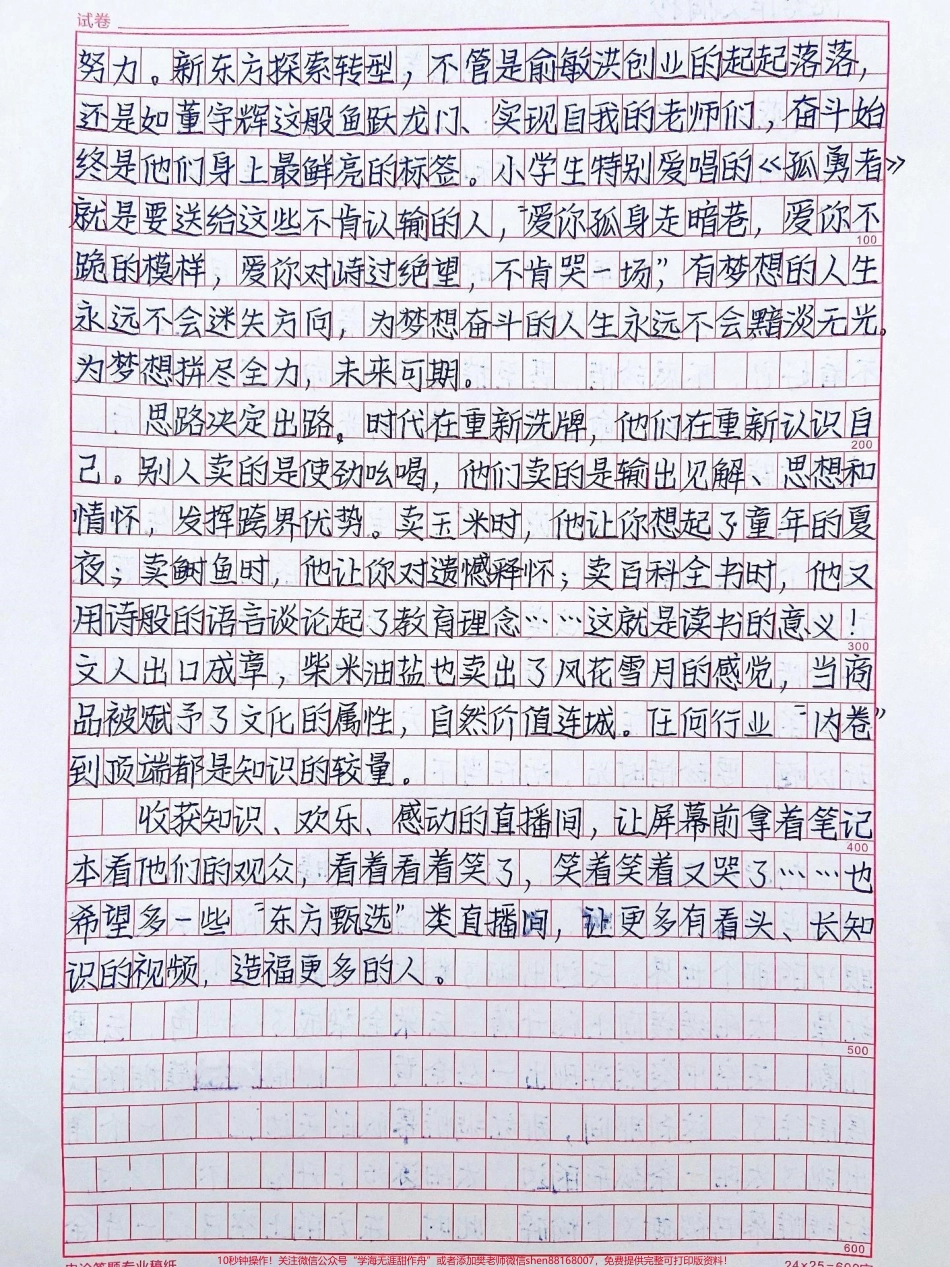 试卷
努力。新东方探索转型，不管是俞敏洪创业的起起落落，
还是如董宇辉这般鱼跃龙门、实现自我的老师们，奋斗始
终是他们身上最鲜亮的标签。小学生特别爱唱的《孤勇者》
就是要送给这些不肯认输的人，“爱你孤身走暗巷，爱你不
100
跪的模样，爱你对峙过绝望，不肯哭一场”，有梦想的人生
永远不会迷失方向，为梦想奋斗的人生永远不会黯淡无光。
为梦想拼尽全力，未来可期。
思路决定出路。时代在重新洗牌，他们在重新认识自
200
己。别人卖的是使劲吆喝，他们卖的是输出见解、思想和
情怀，发挥跨界优势。卖玉米时，他让你想起了童年的夏
夜；卖鲥鱼时，他让你对遗憾释怀；卖百科全书时，他又
用诗般的语言谈论起了教育理念……这就是读书的意义！
300
文人出口成章，柴米油盐也卖出了风花雪月的感觉，当商
品被赋予了文化的属性，自然价值连城。任何行业“内卷”
到顶端都是知识的较量。
收获知识、欢乐、感动的直播间，让屏幕前拿着笔记
400
本看他们的观众，看着看着笑了，笑着笑着又哭了……也
希望多一些“东方甄选”类直播间，让更多有看头、长知
识的视频，造福更多的人。
500
600
10秒钟操作！关注微信公众号“学海无涯甜作舟”或者添加樊老师微信shen88168007，免费提供完整可打印版资料！
24×25=600字